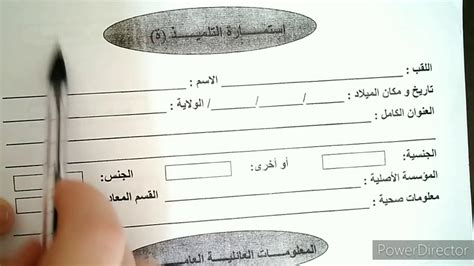 إستمارة التلميذ (ة)
اللقب : الاسم :
تاريخ و مكان الميلاد : / / / الولاية :
العنوان الكامل :
الجنسية: أو أخرى: الجنس:
المؤسسة الأصلية : القسم المعاد
معلومات صحية :
المعلومات العائلية العامـ
PowerDirector